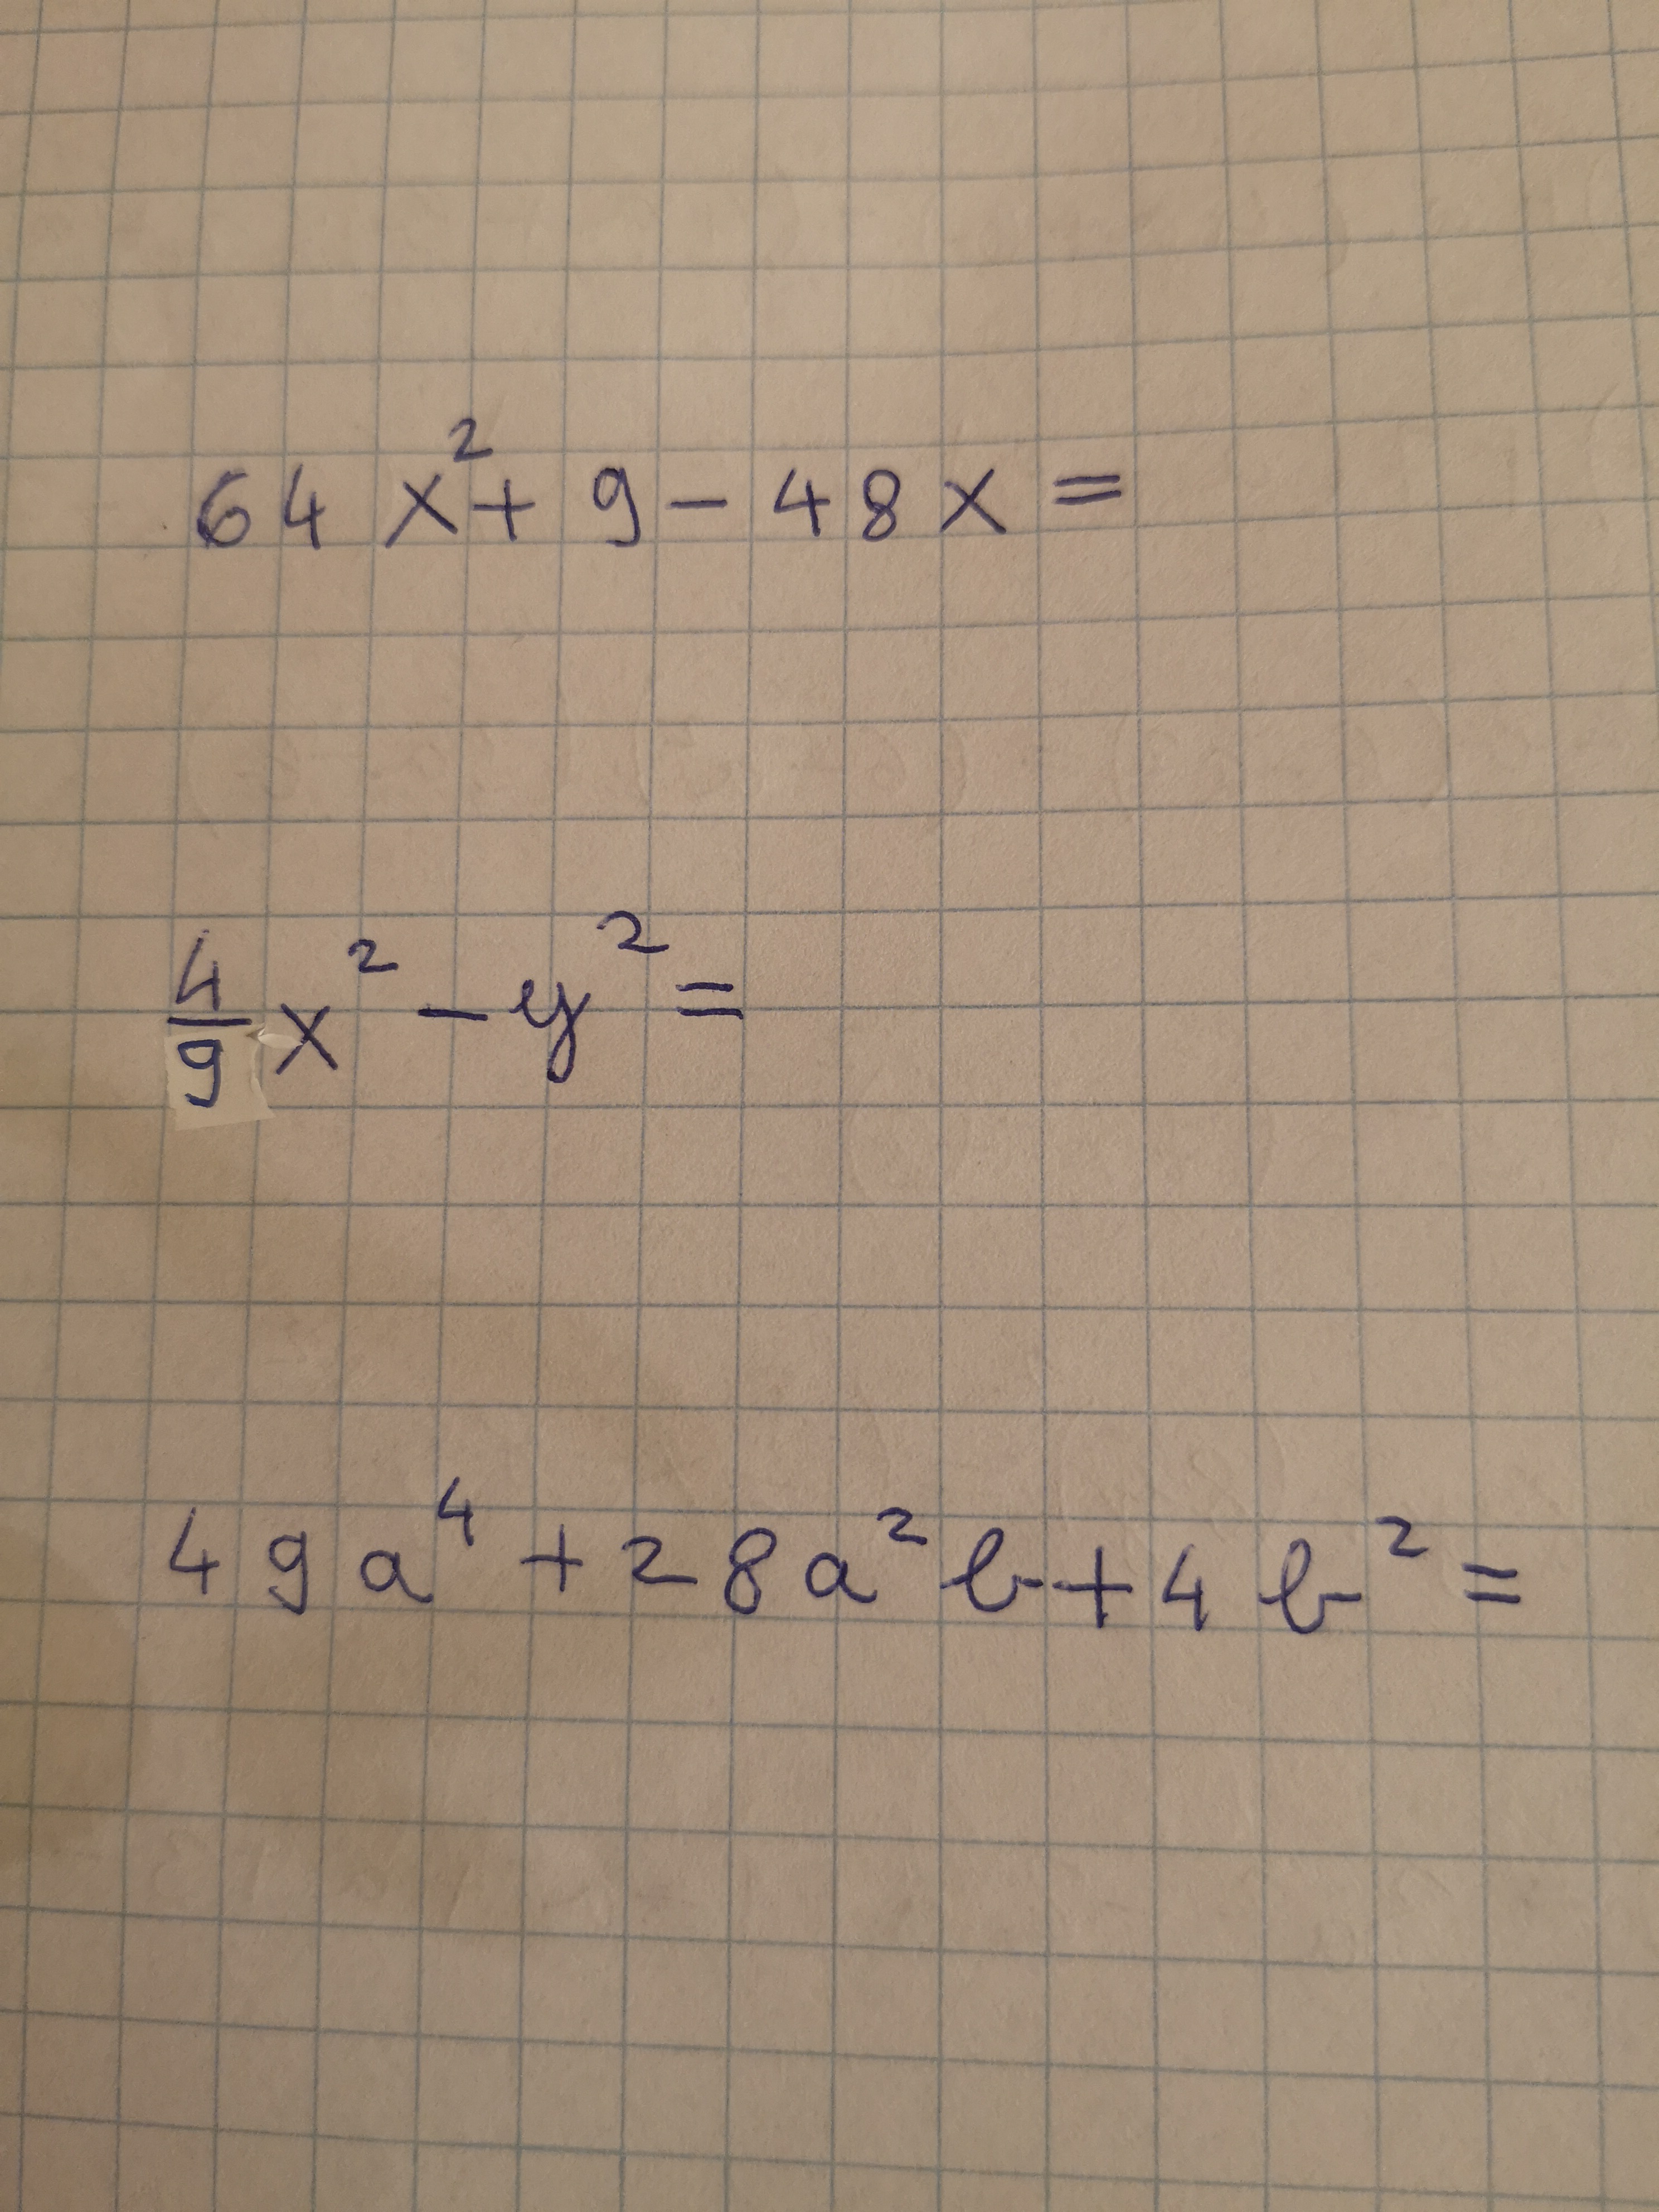 64x² + 9 - 48x =
4/9 x² - y² =
49a⁴ + 28a²b + 4b² =